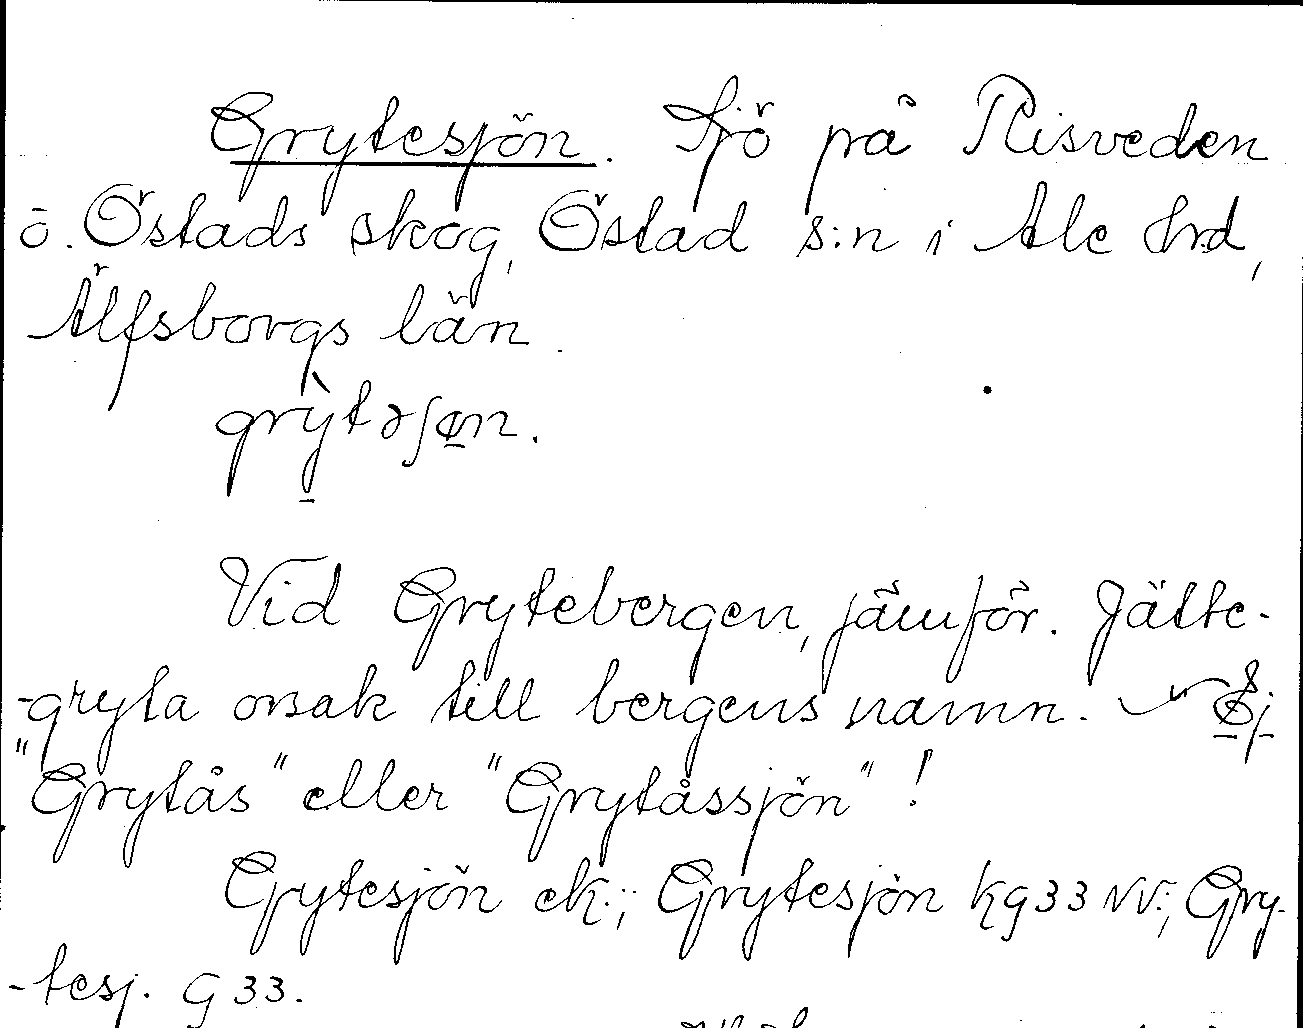 Grytesjön. Sjö på Risveden
ö. Östads skog, Östad s:n i Ale hrd,
Älfsborgs län.
grỳtəʃøn.
Vid Grytebergen, jämför. Jätte-
-gryta orsak till bergens namn. Ej
"Grytås" eller "Grytåssjön"!
Grytesjön ek.; Grytesjön kg 33 NV.; Gry-
-tesj. G 33.